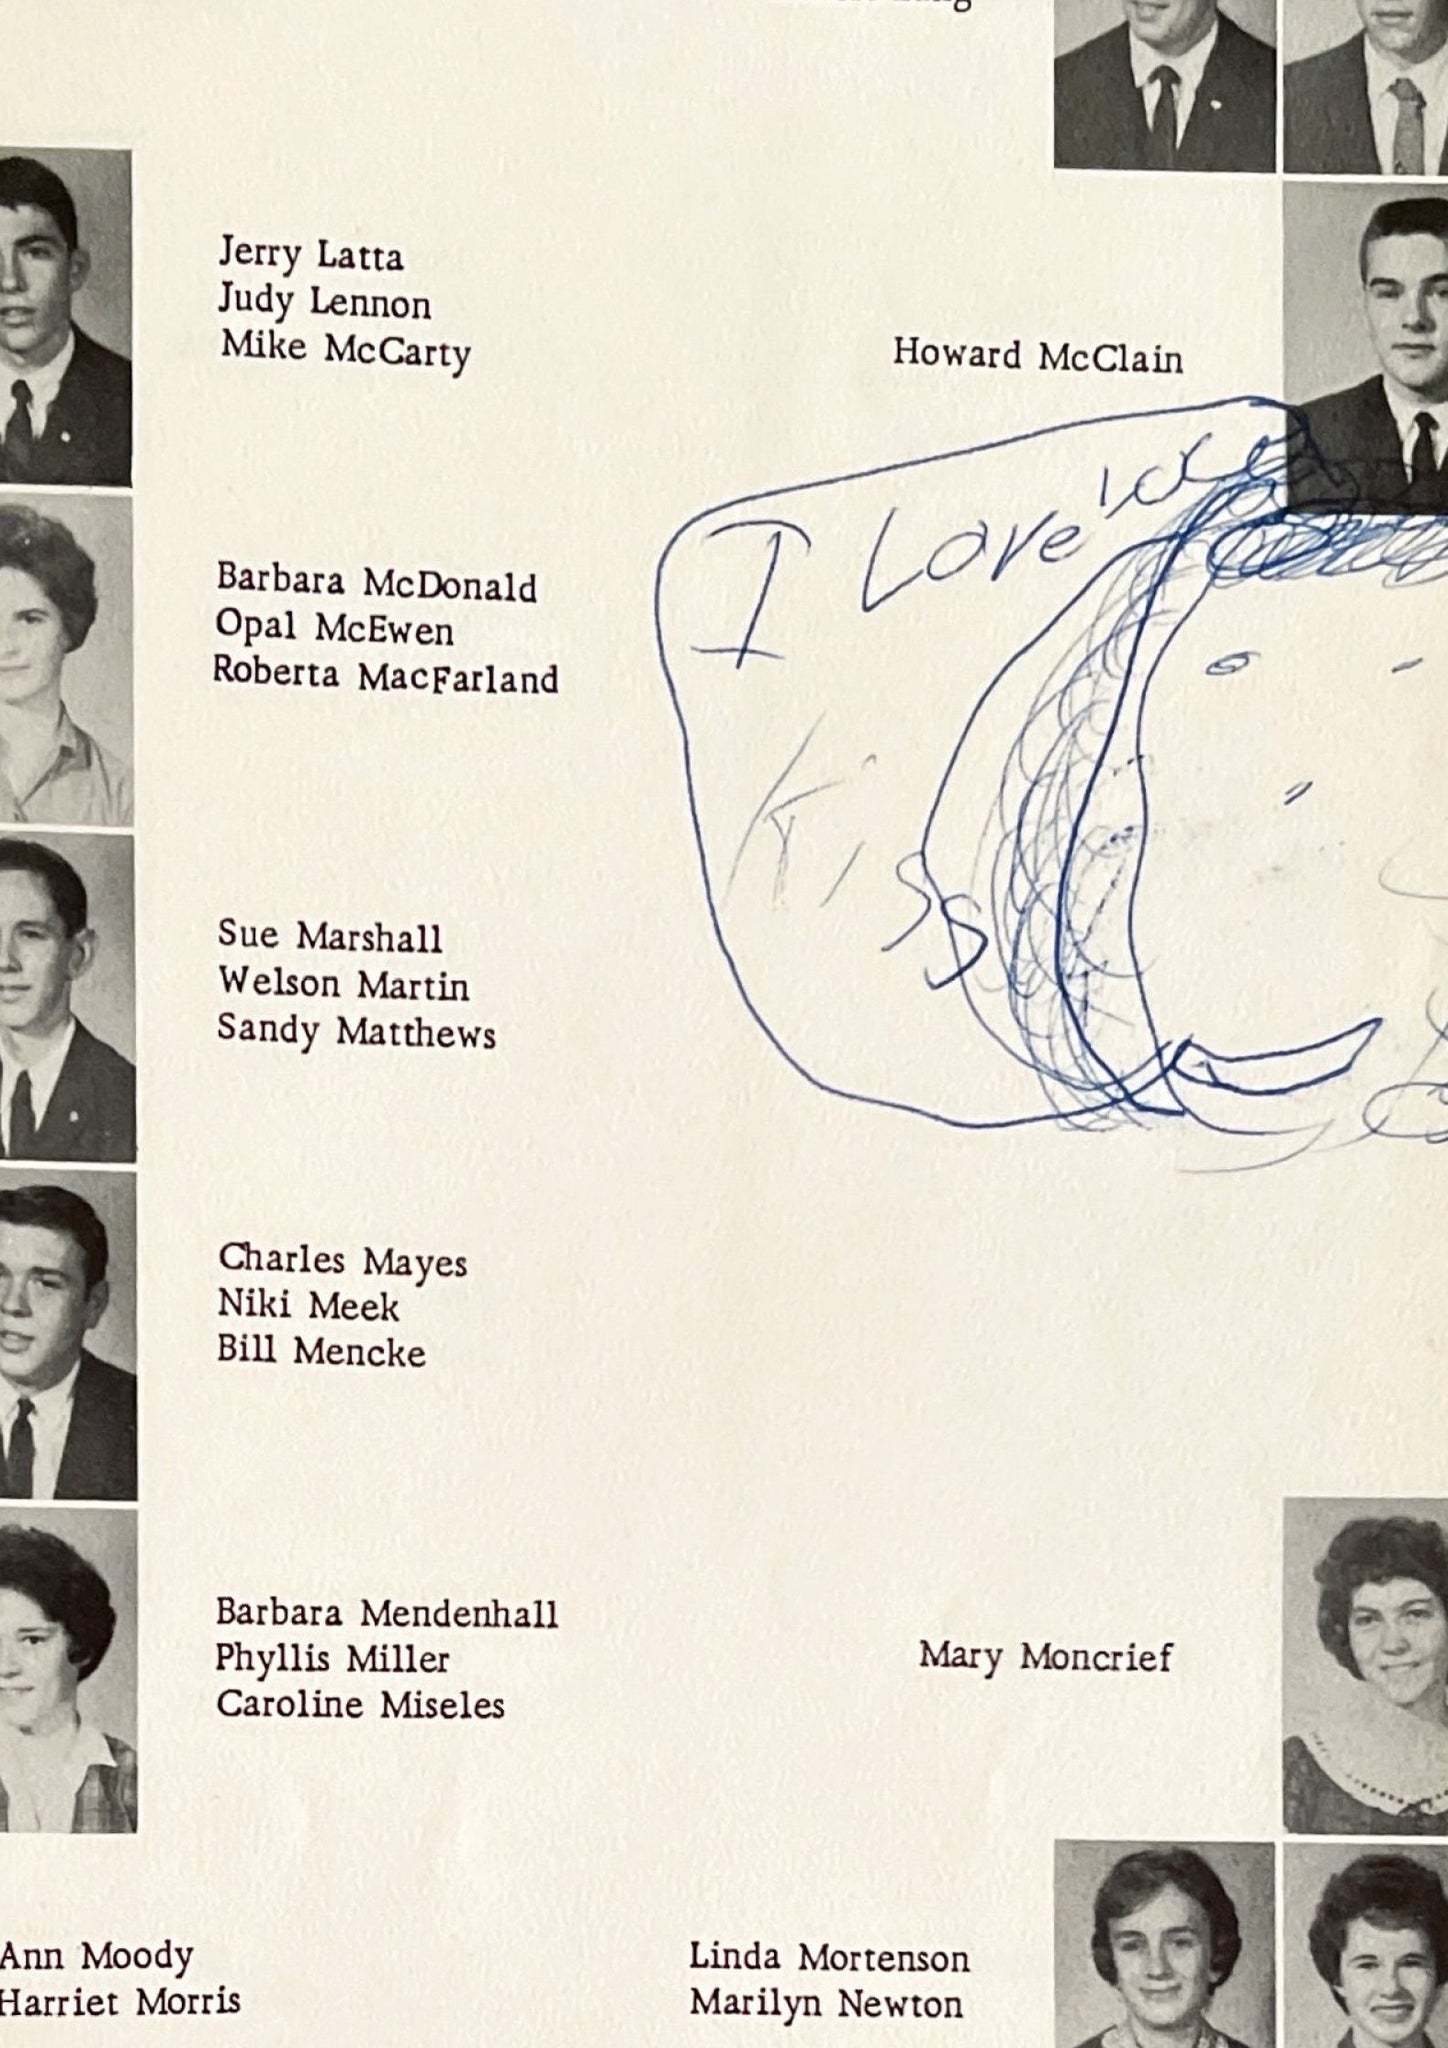 Jerry Latta
Judy Lennon
Mike McCarty
Howard McClain
I Love
Kiss
Barbara McDonald
Opal McEwen
Roberta MacFarland
Sue Marshall
Welson Martin
Sandy Matthews
Charles Mayes
Niki Meek
Bill Mencke
Barbara Mendenhall
Phyllis Miller
Caroline Miseles
Mary Moncrief
Ann Moody
Harriet Morris
Linda Mortenson
Marilyn Newton